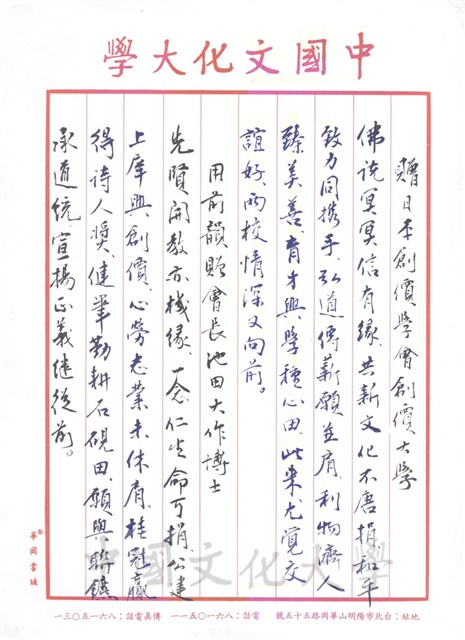 中國文化大學
贈日本創價學會創價大學
佛説冥冥信有緣、共新文化不唐捐、和平
致力同携手、弘道傳薪願並肩、利物濟人
臻美善、育才興學種心田、此來尤覺交
誼好、兩校情深又向前。
用前韻贈會長池田大作博士
先賢開教亦機緣、一念仁命可捐、公建
上庠興創價、心勞志業未休肩、桂冠贏
得詩人獎、健筆勤耕石硯田、願與聯鑣
承道統、宣揚正義繼從前。
華岡書城
地址：台北市陽明山華岡路五十五號　電話：八六一○五一一　傳真電話：八六一五○三一
中國文化大學